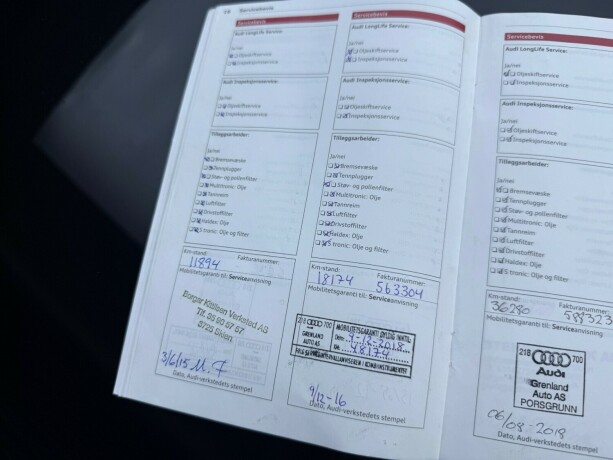 14 Servicebevis
Servicebevis
Audi LongLife Service:
Ja/nei
Oljeskiftservice
Inspeksjonsservice
Audi Inspeksjonsservice:
Ja/nei
Oljeskiftservice
Inspeksjonsservice
Tilleggsarbeider:
Ja/nei
Bremsevæske
Tennplugger
Støv- og pollenfilter
Multitronic: Olje
Tannreim
Luftfilter
Drivstoffilter
Haldex: Olje
S tronic: Olje og filter
Km-stand: Fakturanummer:
11894
Mobilitetsgaranti til: Serviceanvisning
Verksted AS
3/6/15 M.F
Dato, Audi-verkstedets stempel
Servicebevis
Audi LongLife Service:
Ja/nei
Oljeskiftservice
Inspeksjonsservice
Audi Inspeksjonsservice:
Ja/nei
Oljeskiftservice
Inspeksjonsservice
Tilleggsarbeider:
Ja/nei
Bremsevæske
Tennplugger
Støv- og pollenfilter
Multitronic: Olje
Tannreim
Luftfilter
Drivstoffilter
Haldex: Olje
S tronic: Olje og filter
Km-stand: Fakturanummer:
18174 563304
Mobilitetsgaranti til: Serviceanvisning
218 700
GRENLAND
AUTO AS
MOBILITETSGARANTI GYLDIG INNTIL:
Dato: 9-12-2018
KM: 48174
9/12-16
Dato, Audi-verkstedets stempel
Servicebevis
Audi LongLife Service:
Ja/nei
Oljeskiftservice
Inspeksjonsservice
Audi Inspeksjonsservice:
Ja/nei
Oljeskiftservice
Inspeksjonsservice
Tilleggsarbeider:
Ja/nei
Bremsevæske
Tennplugger
Støv- og pollenfilter
Multitronic: Olje
Tannreim
Luftfilter
Drivstoffilter
Haldex: Olje
S tronic: Olje og filter
Km-stand: Fakturanummer:
36280 588323
Mobilitetsgaranti til: Serviceanvisning
218 700
Audi
Grenland
Auto AS
PORSGRUNN
06/08-2018
Dato, Audi-verkstedets stempel